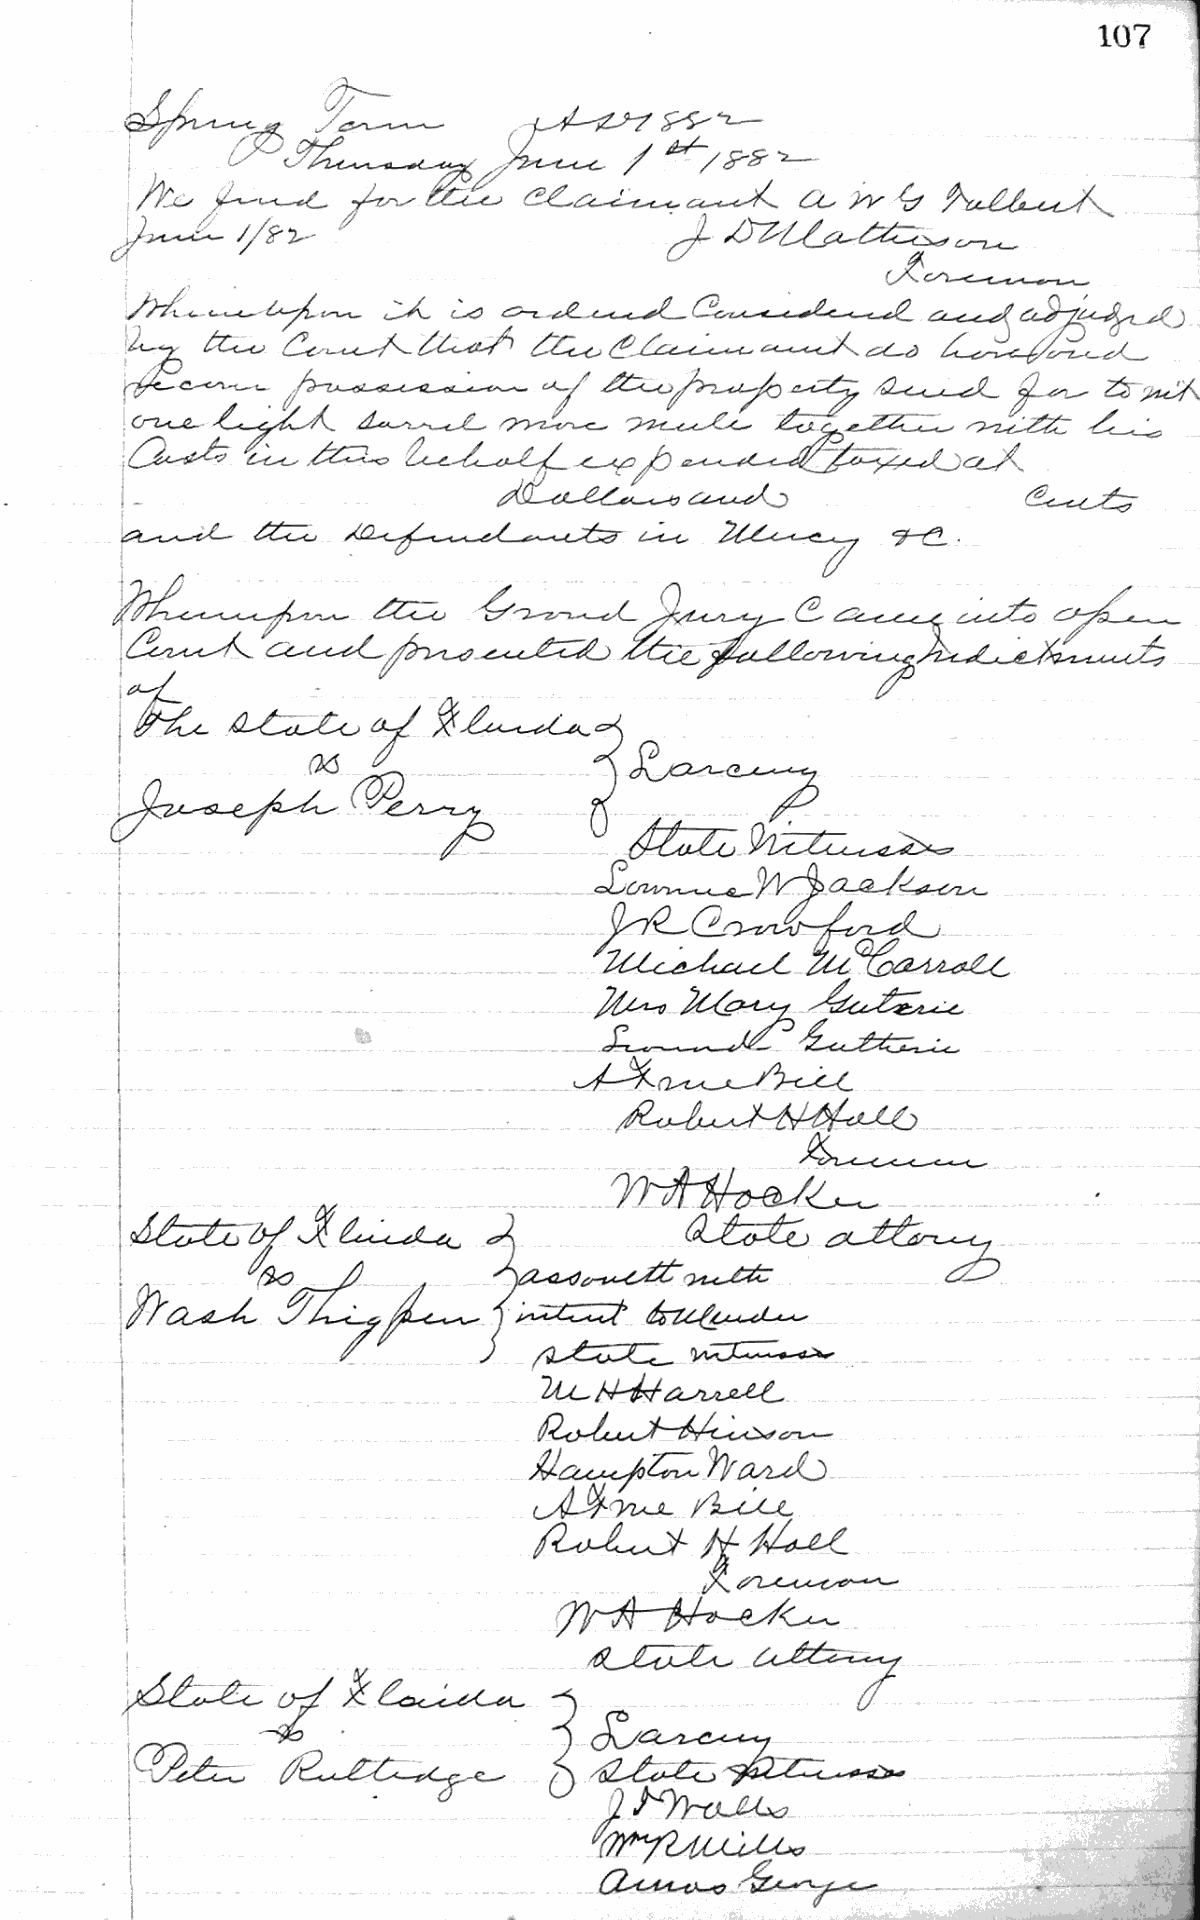 107
Spring Term AD 1882
Thursday June 1st 1882
We find for the Claimant A W G Talbert
June 1/82 J D Matheson
Foreman
Whereupon it is ordered Considered and adjudged
by the Court that the Claimant do have and
recover possession of the property sued for to wit
one light sorrel mare mule together with his
Costs in this behalf expended taxed at
Dollars and Cents
and the Defendants in Mercy &C.
Whereupon the Grand Jury Came into open
Court and presented the following Indictments
of
The State of Florida
vs Larceny
Joseph Perry
State Witnesses
W Jackson
J R Crawford
Michael McCarroll
Mrs Mary Gutrie
Gutherie
A True Bill
Robert H Hall
Foreman
W A Hocker
State of Florida State attorny
vs assault with
Wash Thigpen intent to Murder
State witnesses
M H Harrell
Robert Hinson
Hampton Ward
A True Bill
Robert H Hall
Foreman
W A Hocker
State Attorny
State of Florida
vs Larceny
Peter Rutledge State Witnesses
J T Walls
Wm R Mills
Amos George